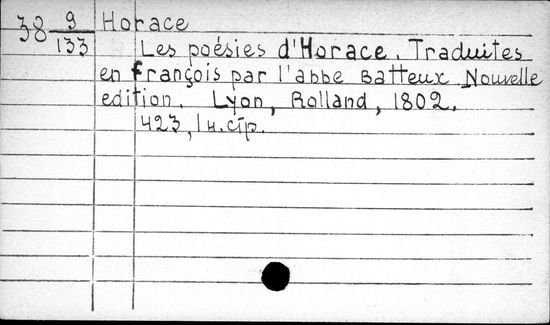 38 9/133 Horace
Les poésies d'Horace. Traduites
en françois par l'abbe Batteux Nouvelle
edition. Lyon, Rolland, 1802.
423, 1 н. стр.